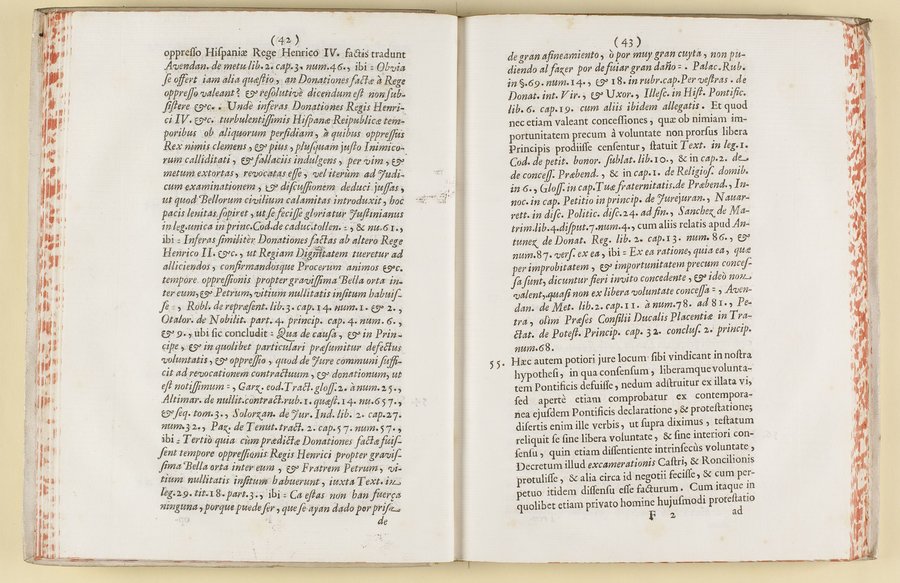 (42)
oppresso Hispaniæ Rege Henrico IV. factis tradunt
Avendan. de metu lib. 2. cap. 3. num. 46., ibi = Obvia
se offert iam alia quæstio, an Donationes factæ à Rege
oppresso valeant? & resolutivè dicendum est non sub-
sistere &c. . Unde inferas Donationes Regis Henri-
ci IV. &c. turbulentissimis Hispanæ Reipublicæ tem-
poribus ob aliquorum perfidiam, à quibus oppressus
Rex nimis clemens, & pius, plusquam justo Inimico-
rum calliditati, & fallaciis indulgens, per vim, &
metum extortas, revocatas esse, vel iterùm ad Judi-
cum examinationem, & discussionem deduci jussas,
ut quod Bellorum civilium calamitas introduxit, hoc
pacis lenitas sopiret, ut se fecisse gloriatur Justinianus
in leg. unica in princ. Cod. de caduc. tollen. =, & nu. 61.,
ibi = Inferas similitèr Donationes factas ab altero Rege
Henrico II. &c., ut Regiam Dignitatem tueretur ad
alliciendos, confirmandosque Procerum animos &c.
tempore oppressionis propter gravissima Bella orta in-
ter eum, & Petrum, vitium nullitatis insitum habuis-
se =, Robl. de repræsent. lib. 3. cap. 14. num. 1. & 2.,
Otalor. de Nobilit. part. 4. princip. cap. 4. num. 6.,
& 9., ubi sic concludit = Qua de causa, & in Prin-
cipe, & in quolibet particulari præsumitur defectus
voluntatis, & oppressio, quod de Jure communi suffi-
cit ad revocationem contractuum, & donationum, ut
est notissimum =, Garz. eod. Tract. gloss. 2. à num. 25.,
Altimar. de nullit. contract. rub. 1. quæst. 14. nu. 657.,
& seq. tom. 3., Solorzan. de Jur. Ind. lib. 2. cap. 27.
num. 32., Paz. de Tenut. tract. 2. cap. 57. num. 57.,
ibi = Tertiò quia cùm prædictæ Donationes factæ fuis-
sent tempore oppressionis Regis Henrici propter gravis-
sima Bella orta inter eum, & Fratrem Petrum, vi-
tium nullitatis insitum habuerunt, iuxta Text. in
leg. 29. tit. 18. part. 3., ibi = Ca estas non han fuerça
ninguna, porque puede ser, que se ayan dado por prisa
de
(43)
de gran afincamiento, ò por muy gran cuyta, non pu-
diendo al fazer por desuiar gran daño = . Palac. Rub.
in §. 69. num. 14., & 18. in rubr. cap. Per vestras . de
Donat. int. Vir., & Uxor., Illesc. in Hist. Pontific.
lib. 6. cap. 19. cum aliis ibidem allegatis. Et quod
nec etiam valeant concessiones, quæ ob nimiam im-
portunitatem precum à voluntate non prorsus libera
Principis prodiisse censentur, statuit Text. in leg. 1.
Cod. de petit. honor. sublat. lib. 10., & in cap. 2. de
de concess. Præbend., & in cap. 1. de Religios. domib.
in 6., Gloss. in cap. Tuæ fraternitatis. de Præbend., In-
noc. in cap. Petitio in princip. de Jurejuran., Navar-
rett. in disc. Politic. disc. 24. ad fin., Sanchez de Ma-
trim. lib. 4. disput. 7. num. 4., cum aliis relatis apud An-
tunez de Donat. Reg. lib. 2. cap. 13. num. 86., &
num. 87. vers. ex ea, ibi = Ex ea ratione, quia ea, quæ
per improbitatem, & importunitatem precum conces-
sa sunt, dicuntur fieri invito concedente, & ideò non
valent, quasi non ex libera voluntate concessa =, Aven-
dan. de Met. lib. 2. cap. 11. à num. 78. ad 81., Pe-
tra, olim Præses Consilii Ducalis Placentiæ in Tra-
ctat. de Potest. Princip. cap. 32. conclus. 2. princip.
num. 68.
55. Hæc autem potiori jure locum sibi vindicant in nostra
hypothesi, in qua consensum, liberamque volunta-
tem Pontificis defuisse, nedum adstruitur ex illata vi,
sed apertè etiam comprobatur ex contempora-
nea ejusdem Pontificis declaratione, & protestatione;
disertis enim ille verbis, ut supra diximus, testatum
reliquit se sine libera voluntate, & sine interiori con-
sensu, quin etiam dissentiente intrinsecùs voluntate,
Decretum illud excamerationis Castri, & Roncilionis
protulisse, & alia circa id negotii fecisse, & cum per-
petuo itidem dissensu esse facturum. Cum itaque in
quolibet etiam privato homine hujusmodi protestatio
F 2
ad